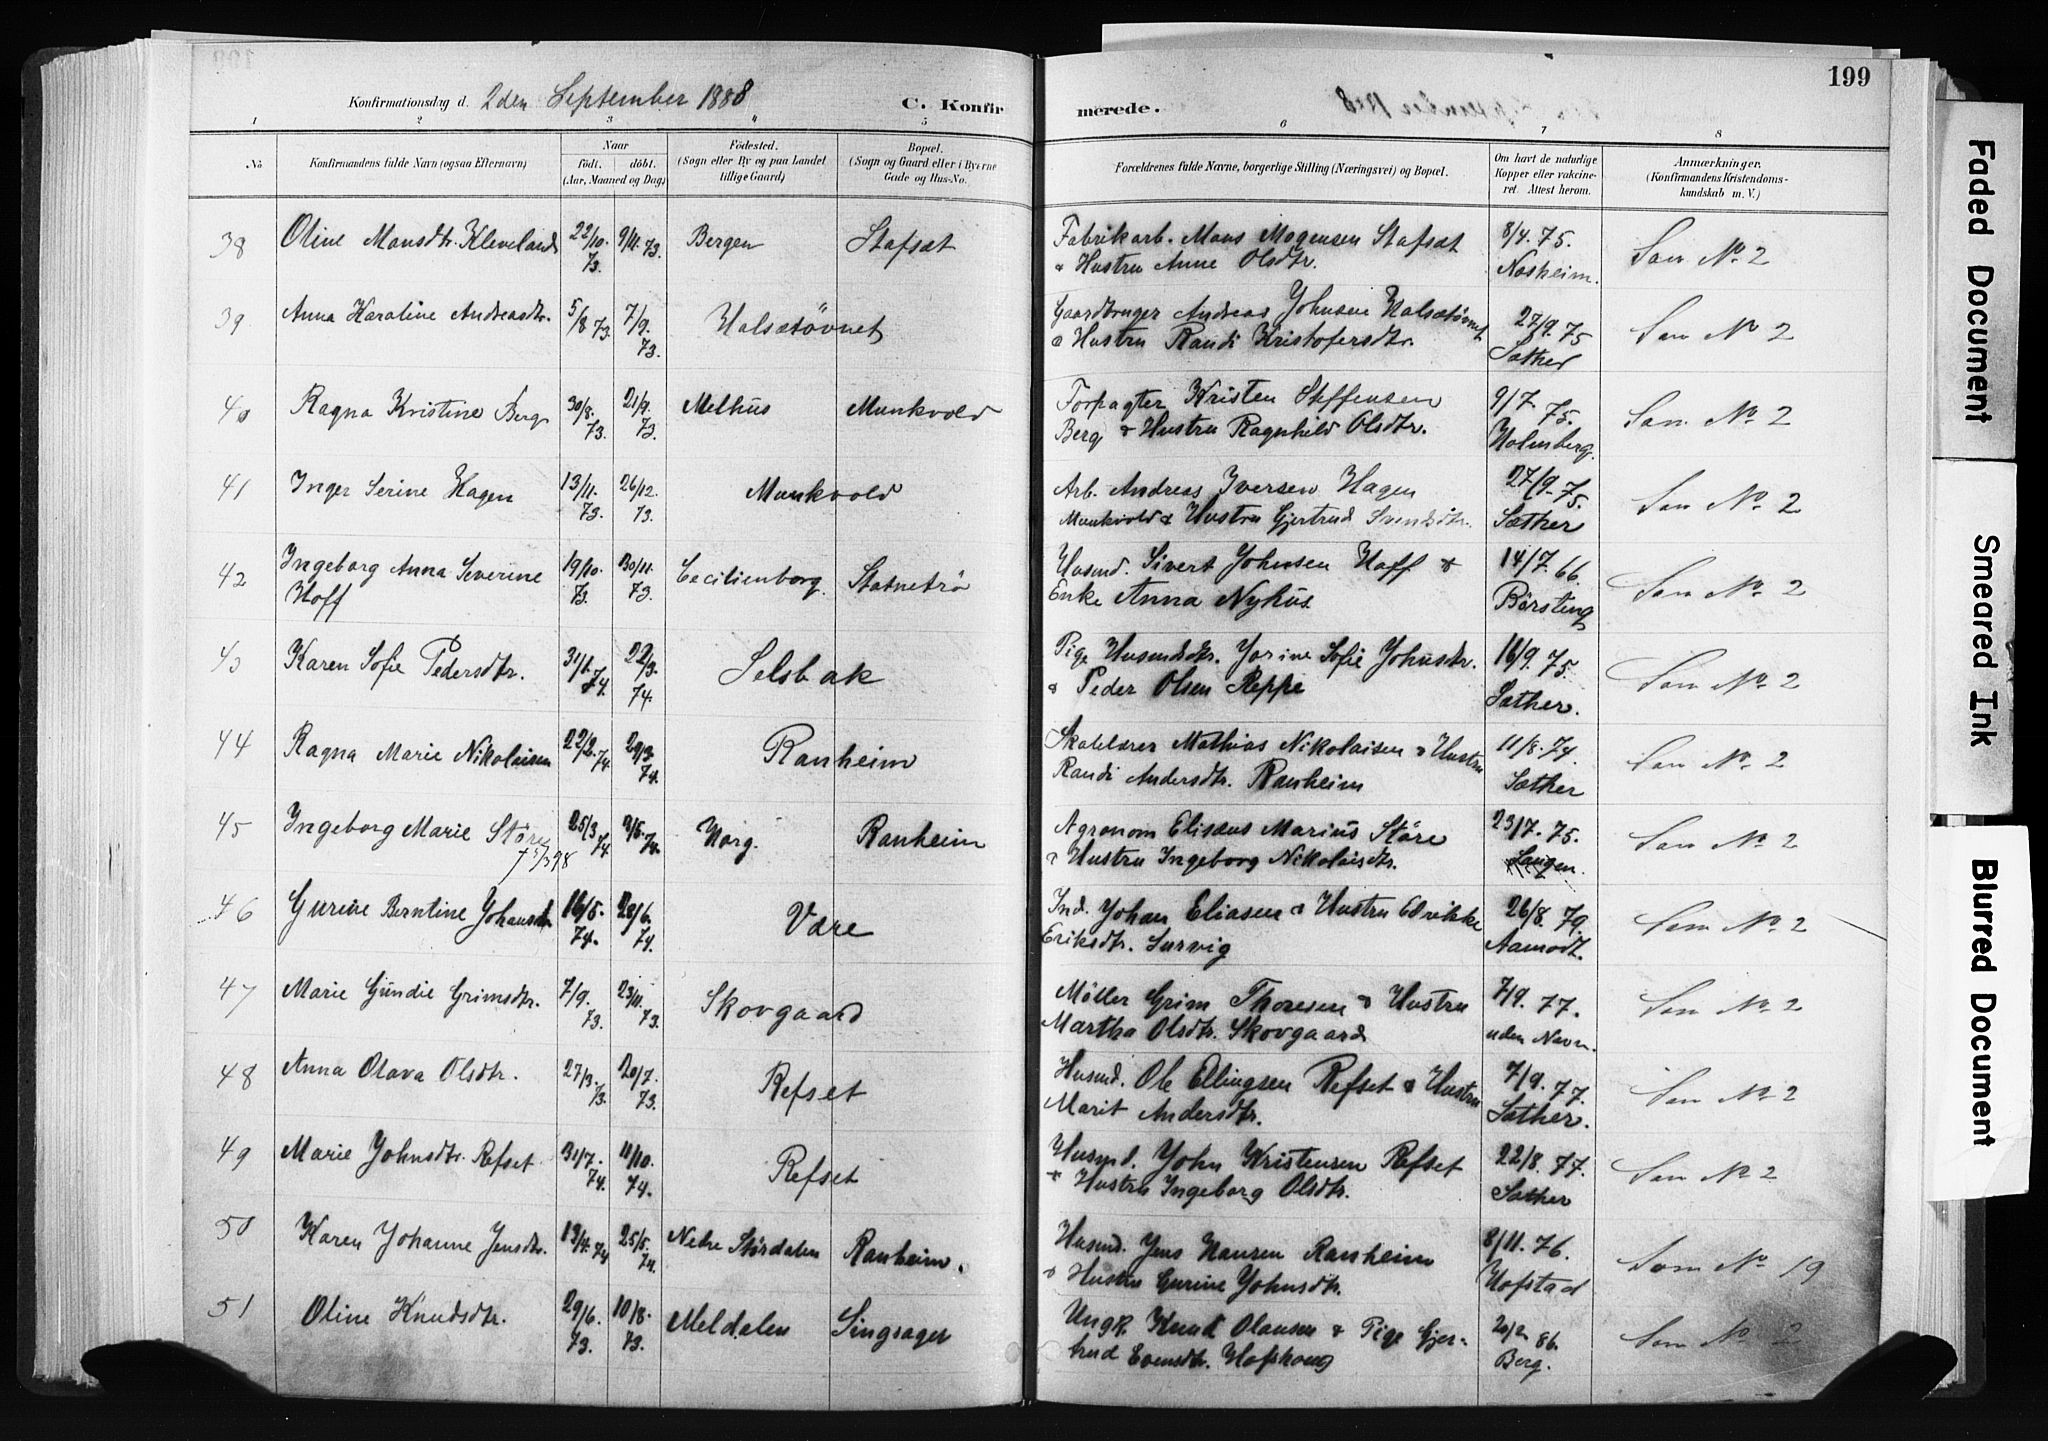 199
Konfirmationsdag d. 2den September 1888 C. Konfirmerede.
1 2 3 4 5 6 7 8
No Konfirmandens fulde Navn (ogsaa Efternavn) Naar født. døbt. (Aar, Maaned og Dag) Fødested. (Sogn eller By og paa Landet tillige Gaard) Bopæl. (Sogn og Gaard eller i Byerne Gade og Hus-No. Forældrenes fulde Navne, borgerlige Stilling (Næringsvei) og Bopæl. Om havt de naturlige Kopper eller vakcineret. Attest herom. Anmærkninger. (Konfirmandens Kristendomskundskab m. V.)
38 Oline Monsdtr. Kleveland 22/10. 73. 9/11. 73. Bergen Stafsæt Fabrikarb. Mons Mogensen Stafsæt 8/4. 75.
& Hustru Anne Olsdtr. Nosheim. Som No 2
39 Anna Karoline Andreasdtr. 5/8 73. 7/9. 73. Halsetøvnet Gaardbruger Andreas Johnsen Halsetøvnet 27/9. 75
& Hustru Randi Kristofersdtr. Sæther Som No 2
40 Ragna Kristine Berg 30/8. 73. 21/9. 73. Melhus Munkvold Forpagter Kristen Steffensen 9/7. 75.
Berg & Hustru Ragnhild Olsdtr. Holmberg. Som No 2
41 Inger Serine Hagen 13/11. 73. 26/12. 73. Munkvold Arb. Andreas Iversen Hagen 27/9. 75.
Munkvold & Hustru Gjertrud Svendsdtr. Sæther Som No 2
42 Ingeborg Anna Severine 19/10. 73. 30/11. 73. Cecilienborg. Statnetrø Husmd. Sivert Johnsen Hoff & 14/7. 66.
Hoff Enke Anna Nyhus Børsting Som No 2
43 Karen Sofie Pedersdtr. 31/1. 74. 22/3. 74. Selsbak Pige Husmdsdtr. Jorine Sofie Johnsdtr. 16/9. 75.
& Peder Olsen Reppe Sæther. Som No 2
44 Ragna Marie Nikolaisen 22/2. 74. 29/3 74. Ranheim Skolelærer Mathias Nikolaisen & Hustru 11/8. 74.
Randi Andersdtr. Ranheim Sæther Som No 2
45 Ingeborg Marie Støre 25/3 74. 3/5. 74. Horg. Ranheim Agronom Elisæus Marius Støre 23/7. 75.
& Hustru Ingeborg Nikolaisdtr. Langen. Som No 2
46 Gurine Berntine Johansdtr. 16/5. 74. 28/6. 74. Være Ind. Johan Eliasen & Hustru Edrikke 26/8. 79.
Eriksdtr. Survig Aamodt. Som No 2
47 Marie Gundie Grimsdtr. 7/9. 73. 23/11. 73. Skovgaard Møller Grim Thoresen & Hustru 7/9. 77.
Martha Olsdtr. Skovgaard uden Navn. Som No 2
48 Anna Olava Olsdtr. 27/3. 73. 20/7. 73. Refset Husmd. Ole Ellingsen Refset & Hustru 7/9. 77.
Marit Andersdtr. Sæther. Som No 2
49 Marie Johnsdtr. Refset 31/7. 74. 11/10. 74. Refset Husmd. John Kristensen Refset 22/8. 77.
& Hustru Ingeborg Olsdtr. Sæther Som No 2
50 Karen Johanne Jensdtr. 13/4. 74 25/5. 74. Nedre Størdalen Ranheim. Husmd. Jens Hansen Ranheim 8/11. 76.
& Hustru Gurine Johnsdtr. Hofstad Som No 19
51 Oline Knudsdtr. 29/6. 73. 10/8. 73. Meldalen Singsager Ungk. Knud Olausen & Pige Gjer- 20/2 86.
trud Evensdtr. Hofshoug Berg. Som No 2
Faded Document
Smeared Ink
Blurred Document